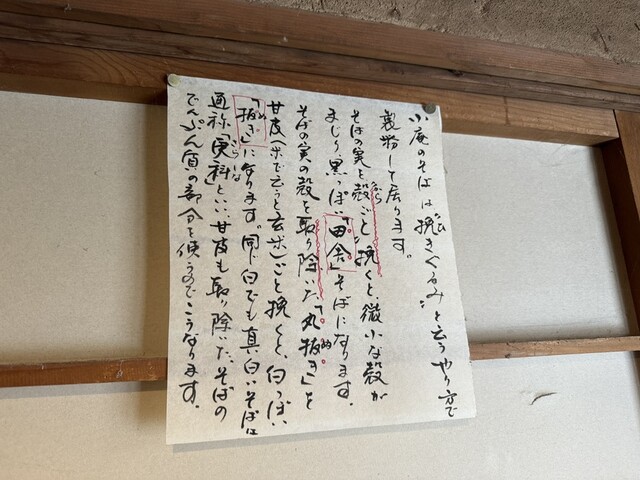 小庵のそばは挽きぐるみと云うやり方で
製粉して居ります。
そばの実を殻ごと挽くと、微小な殻が
まじり黒っぽい「田舎」そばになります。
そばの実の殻を取り除いた「丸抜き」を
甘皮(米で云うと玄米)ごと挽くと、白っぽい
「抜き」になります。同じ白でも真白いそばは
通称「更科」といい、甘皮も取り除いた、そばの
でんぷん質の部分を使うのでこうなります。